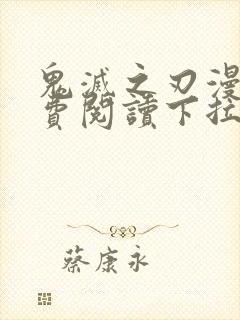 鬼滅之刃漫
費閱讀下拉
蔡康永